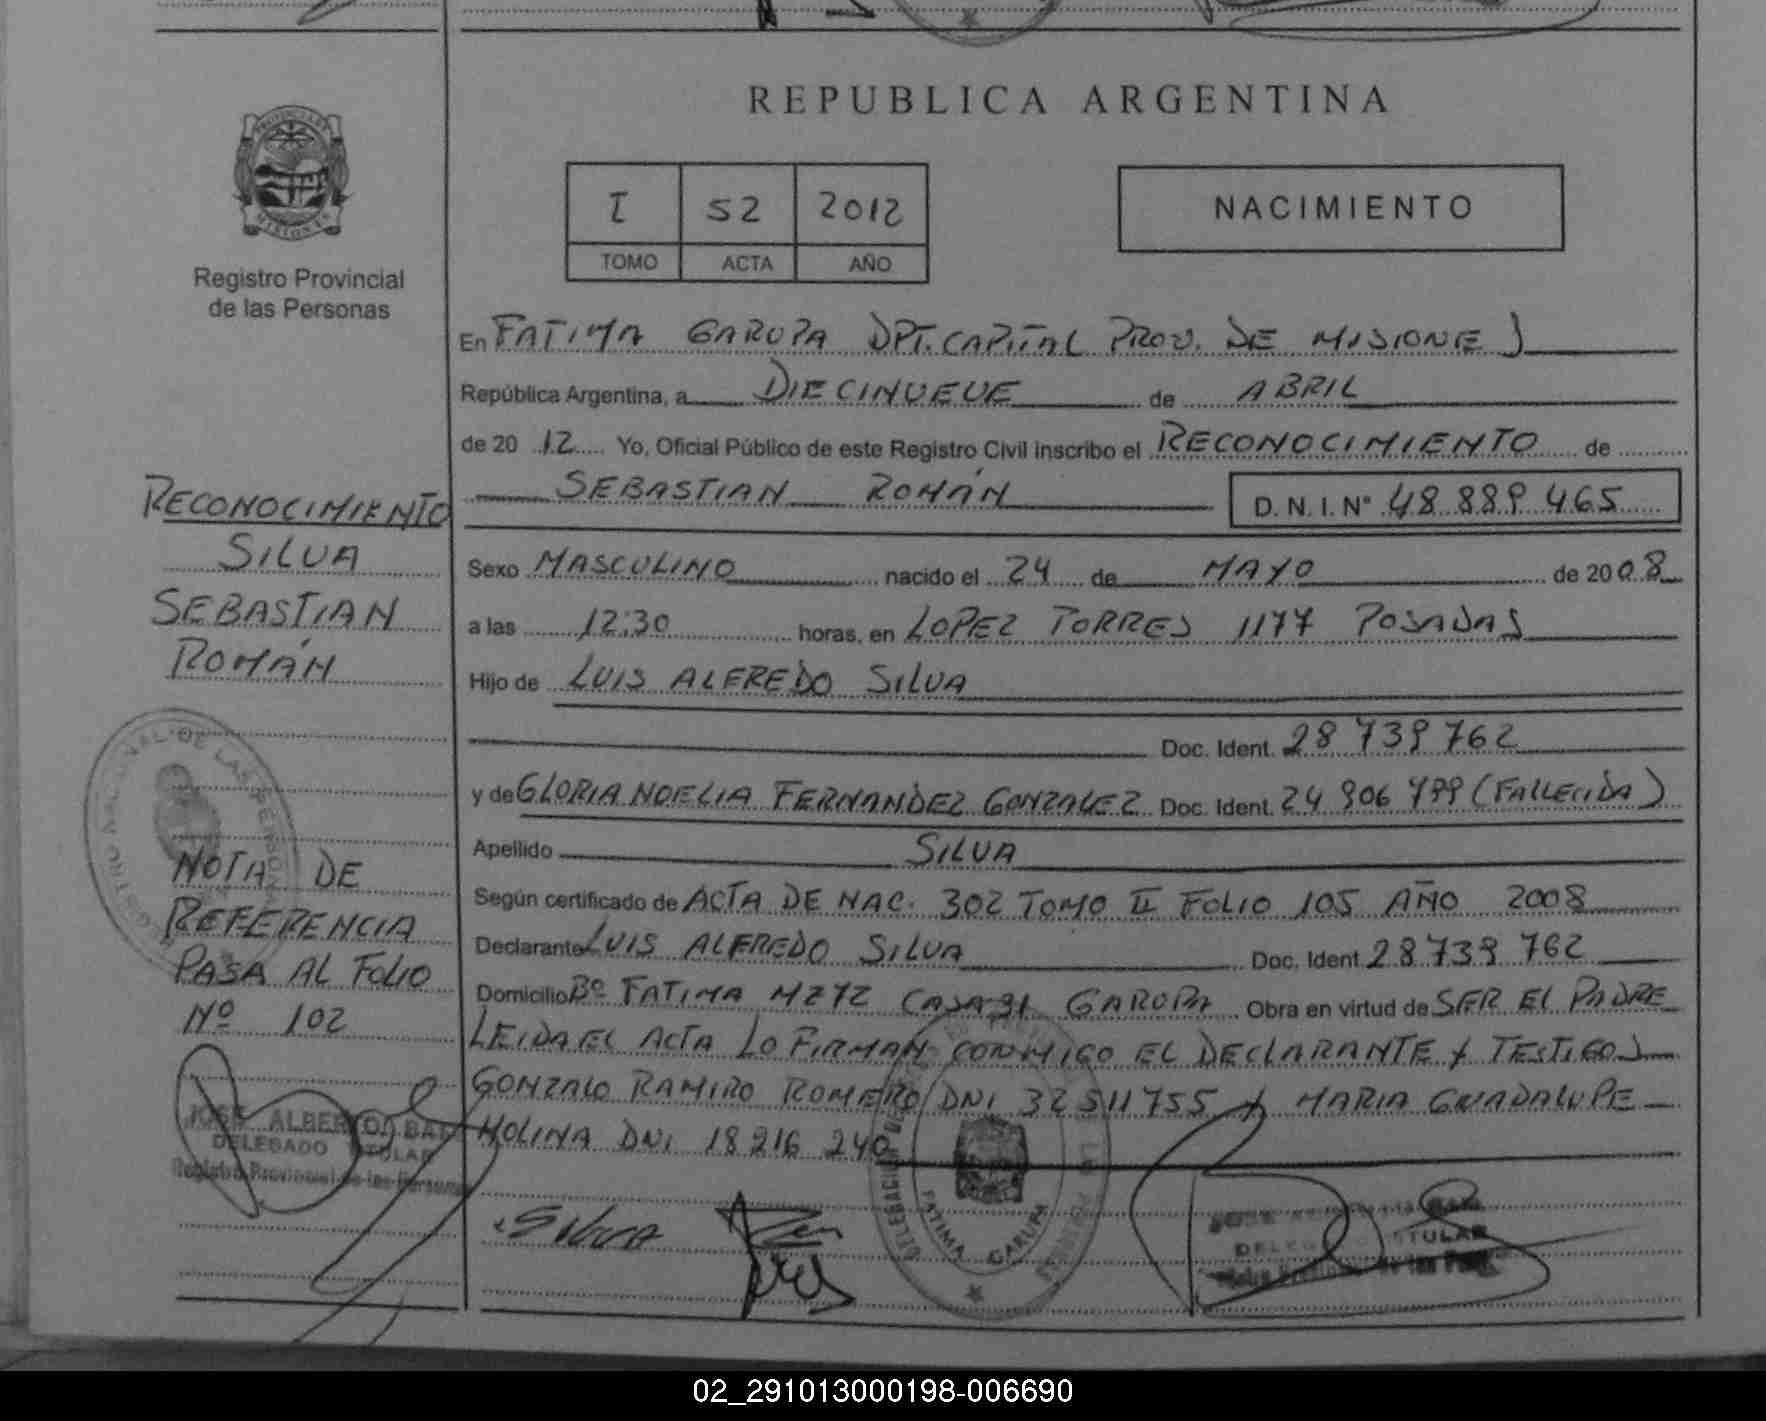 REPUBLICA ARGENTINA
PROVINCIA DE
MISIONES
Registro Provincial
de las Personas
I 52 2012
TOMO ACTA AÑO
NACIMIENTO
En FATIMA GARUPA DPT. CAPITAL PROV. DE MISIONES
República Argentina, a DIECINUEVE de ABRIL
de 20 12 Yo, Oficial Público de este Registro Civil inscribo el RECONOCIMIENTO de
SEBASTIAN ROMÁN D. N. I. Nº 48 889 465
Sexo MASCULINO nacido el 24 de MAYO de 20 08
a las 12:30 horas, en LOPEZ TORRES 1177 POSADAS
Hijo de LUIS ALFREDO SILVA
Doc. Ident. 28 739 762
y de GLORIA NOELIA FERNANDEZ GONZALEZ Doc. Ident. 24 906 499 (FALLECIDA)
Apellido SILVA
Según certificado de ACTA DE NAC. 302 TOMO II FOLIO 105 AÑO 2008
Declarante LUIS ALFREDO SILVA Doc. Ident 28 739 762
Domicilio Bº FATIMA MZ 72 CASA 31 GARUPA Obra en virtud de SER EL PADRE
LEIDA EL ACTA LO FIRMAN CONMIGO EL DECLARANTE Y TESTIGOS
GONZALO RAMIRO ROMERO DNI 32 511 755 Y MARIA GUADALUPE
MOLINA DNI 18 216 240
RECONOCIMIENTO
SILVA
SEBASTIAN
ROMÁN
REGISTRO NACIONAL DE LAS PERSONAS
NOTA DE
REFERENCIA
PASA AL FOLIO
Nº 102
JOSE ALBERTO
DELEGADO TITULAR
Registro Provincial de las Personas
Silva
DELEGACION
FATIMA GARUPA
JOSE
DELEGADO TITULAR
02_291013000198-006690